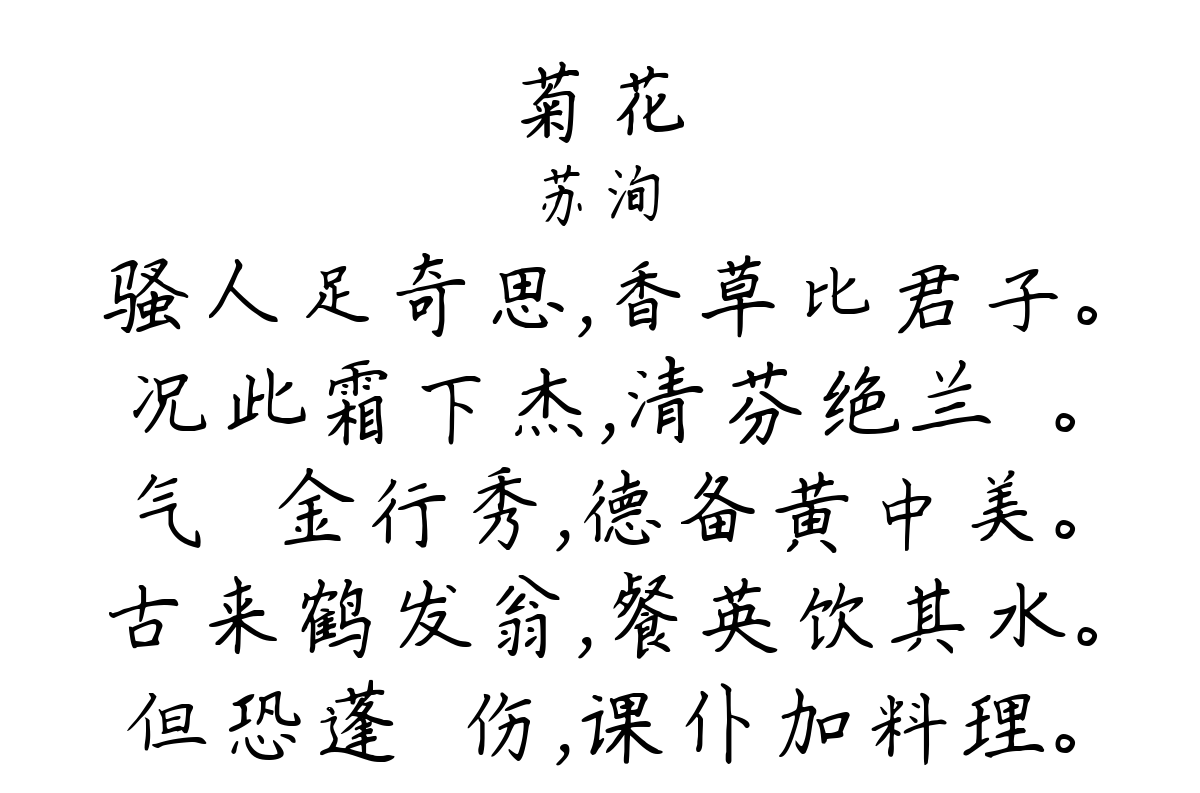 菊花
苏洵
骚人足奇思,香草比君子。
况此霜下杰,清芬绝兰 。
气 金行秀,德备黄中美。
古来鹤发翁,餐英饮其水。
但恐蓬 伤,课仆加料理。